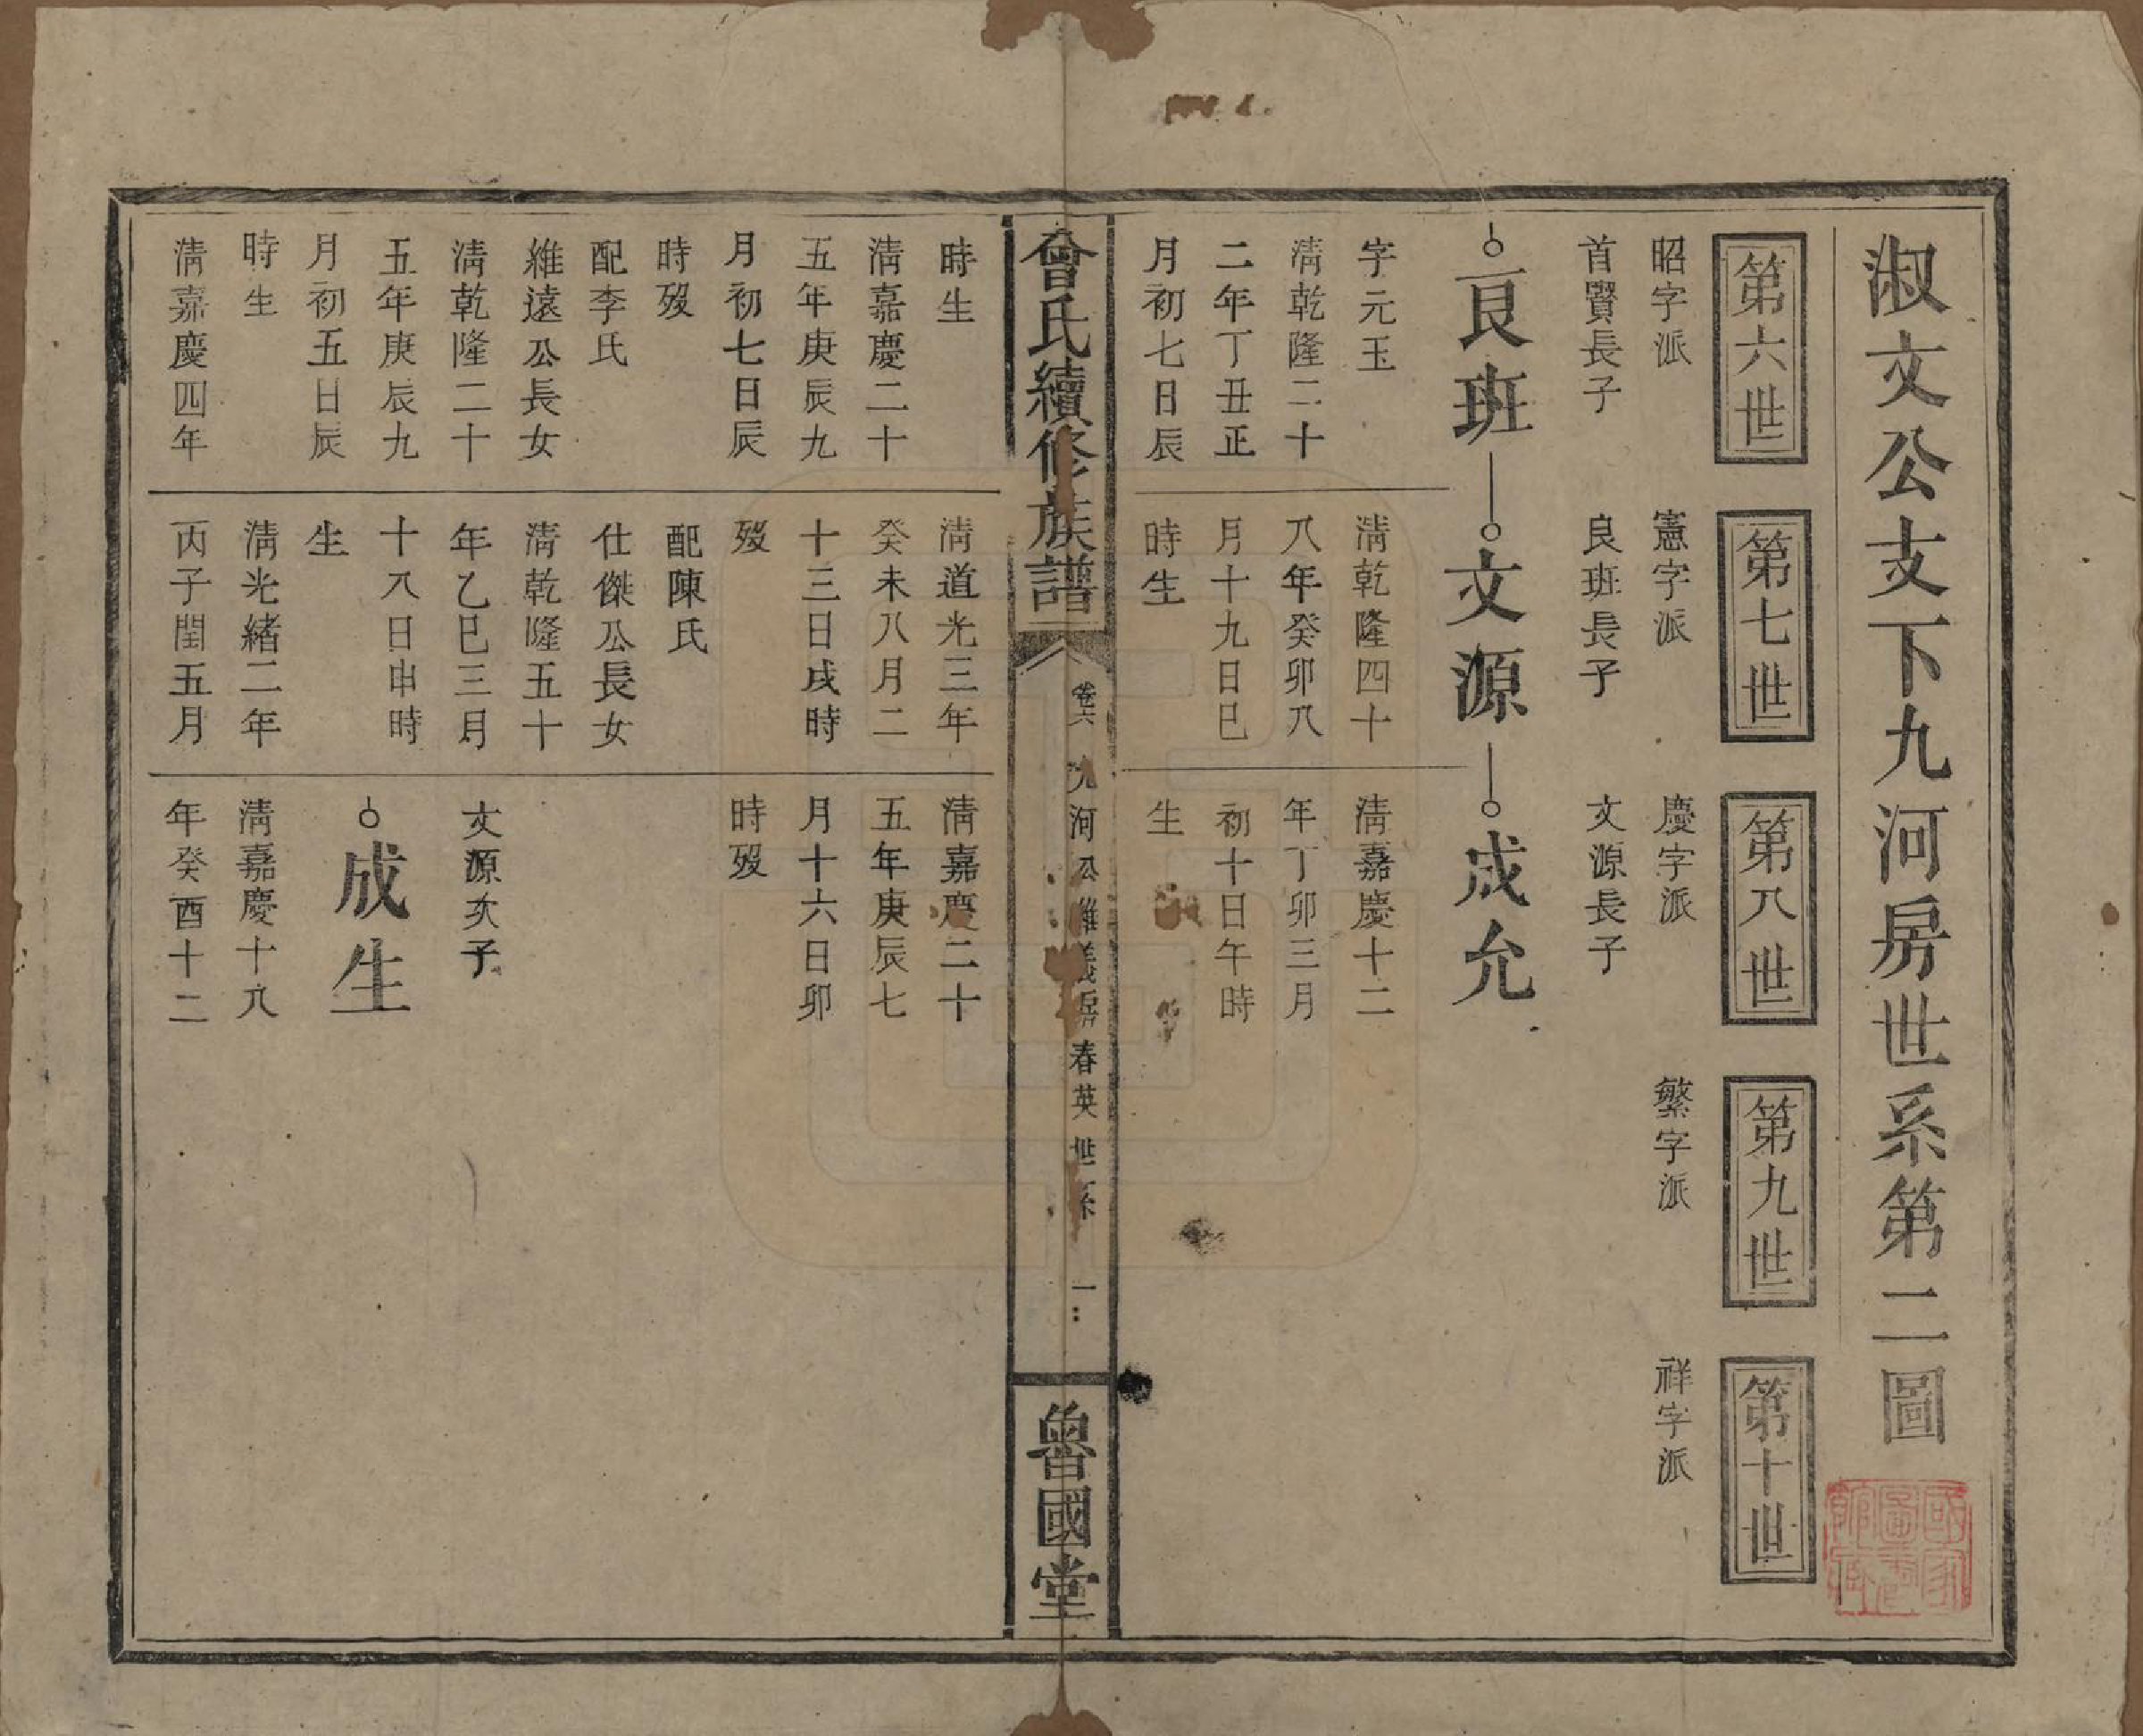 淑文公支下九河房世系第二圖
第六世
昭字派
首賢長子
第七世
憲字派
良班長子
第八世
慶字派
文源長子
第九世
繁字派
第十世
祥字派
良班
文源
成允
字元玉
淸乾隆二十
二年丁丑正
月初七日辰
淸乾隆四十
八年癸卯八
月十九日巳
時生
淸嘉慶十二
年丁卯三月
初十日午時
生
曾氏續修族譜
卷六
九河公維義房
春英世系
一
魯國堂
時生
淸嘉慶二十
五年庚辰九
月初七日辰
時歿
配李氏
維遠公長女
淸乾隆二十
五年庚辰九
月初五日辰
時生
淸嘉慶四年
淸道光三年
癸未八月二
十三日戌時
歿
配陳氏
仕傑公長女
淸乾隆五十
年乙巳三月
十八日申時
生
淸光緒二年
丙子閏五月
淸嘉慶二十
五年庚辰七
月十六日卯
時歿
文源次子
成生
淸嘉慶十八
年癸酉十二